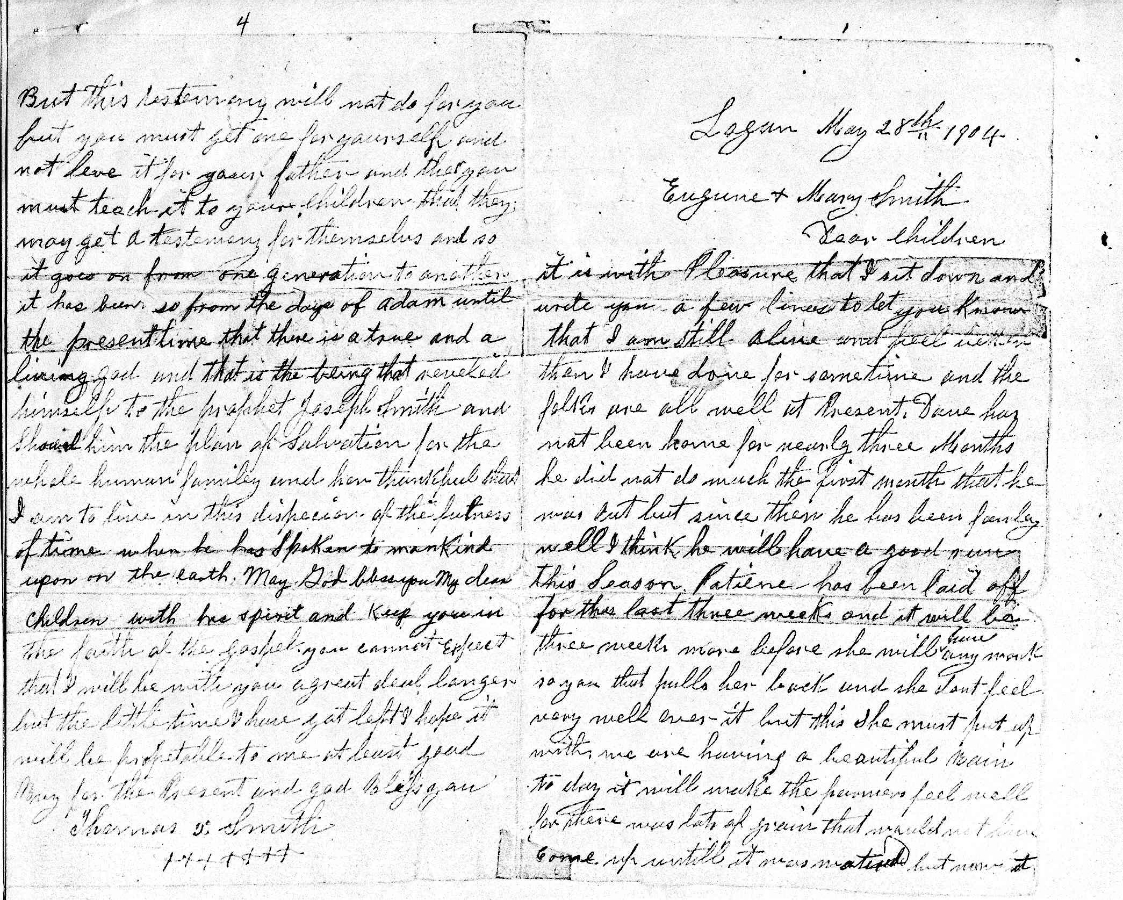 4
But this testemony will not do for you
but you must get one for yourself and
not leve it for your father and that you
must teach it to your children that they
may get a testemony for themselvs and so
it goes on from one generation to another
it has been so from the days of adam until
the present time that there is a true and a
living god and that is the being that reveled
himself to the prophet Joseph Smith and
him the plan of Salvation for the
whole human familey and how thankful that
I am to live in this of the fulness
of time when he has Spoken to mankind
upon on the earth. May God bless you My dear
children with his spirit and Keep you in
the faith of the gospel you cannot Expect
that I will be with you a great deal longer
but the little time I have got left I hope it
will be to me at least good
Buy for the Present and god bless you
Thomas Smith
+++++++
1
Logan May 28th 1904
Eugune + Mary Smith
Dear Children
it is with Pleasure that I sit down and
write you a few lines to let you know
that I am Still alive and feel better
than I have done for sometime and the
folks are all well at Present. Dave has
not been home for nearly three Months
he did not do much the first month that he
was out but since then he has been
well I think he will have a good run
this Season, has been laid off
for this last three weeks and it will be
three weeks more before she will have any work
so you that pulls her back and she dont feel
very well over it but this She must put up
with, we are having a beautiful Rain
to day it will make the farmers feel well
for there was lots of grain that would not
Come up untill it was but now it